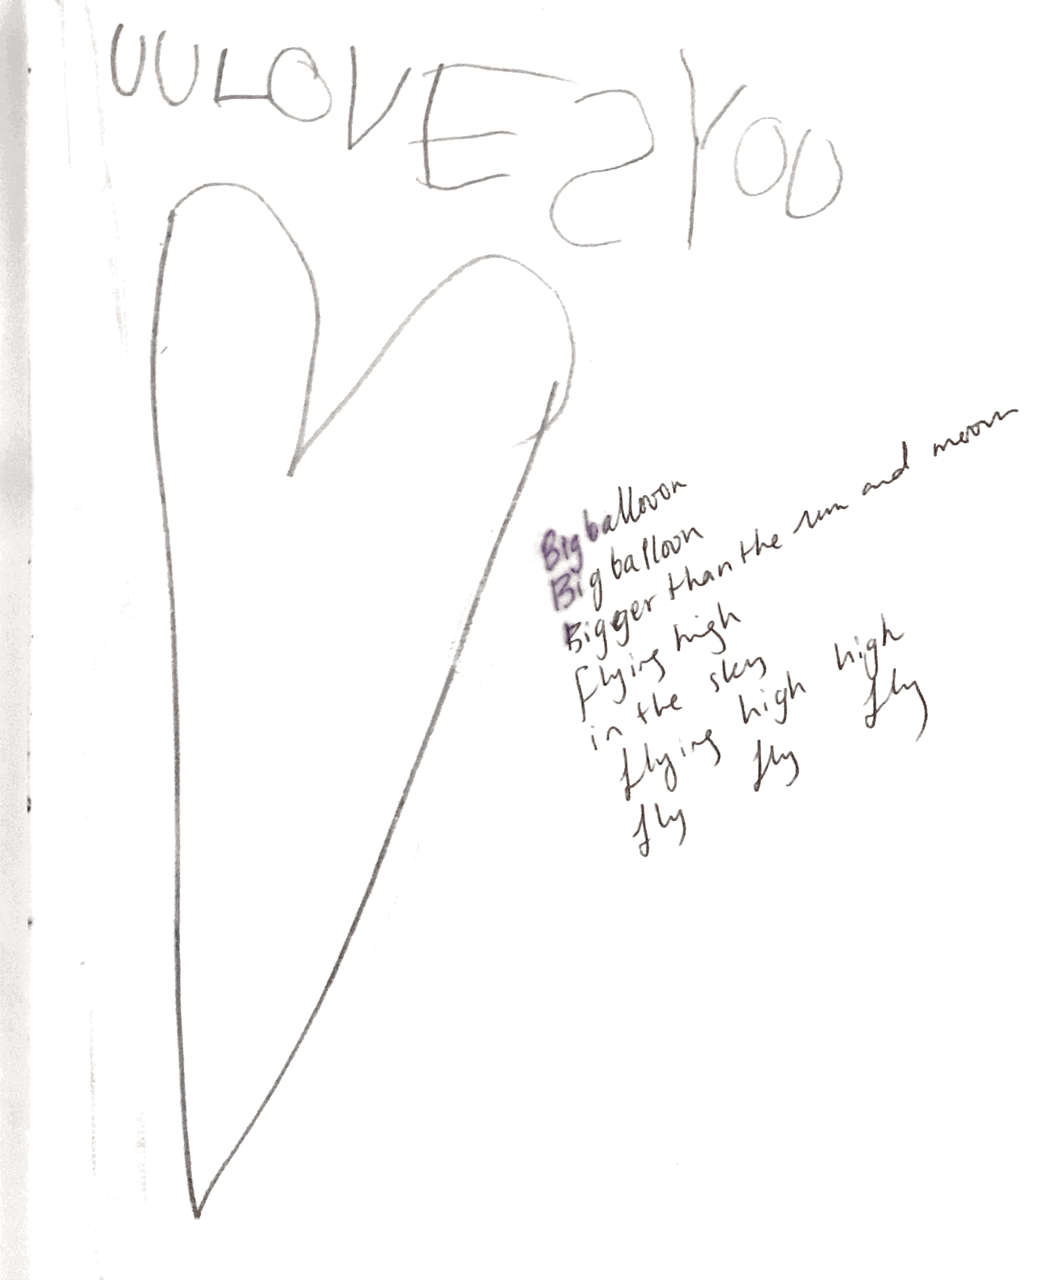 UULOVESYOU
Big balloon
Big balloon
Bigger than the sun and moon
flying high
in the sky
flying high high
fly fly fly